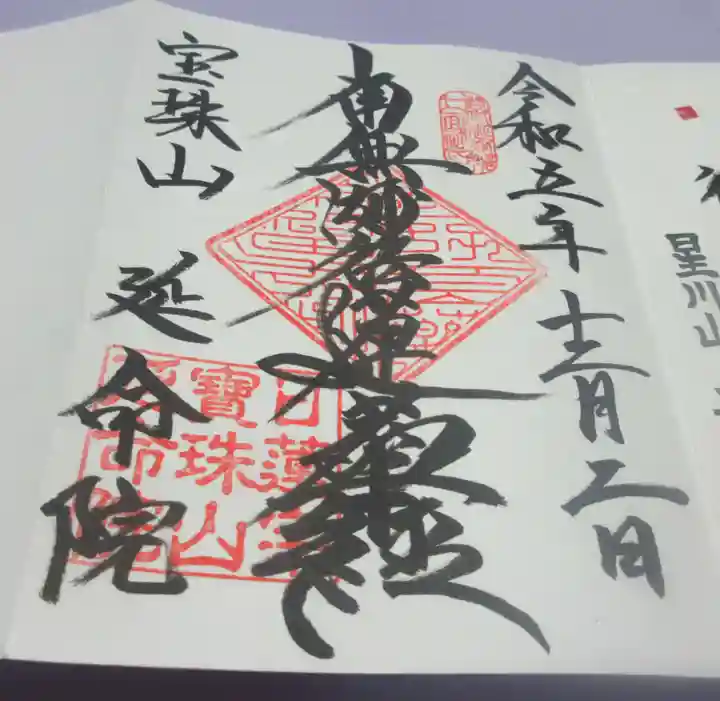 令和五年十二月二日
南無妙法蓮華経
宝珠山 延命院
日蓮宗
寶珠山
延命院
星川山